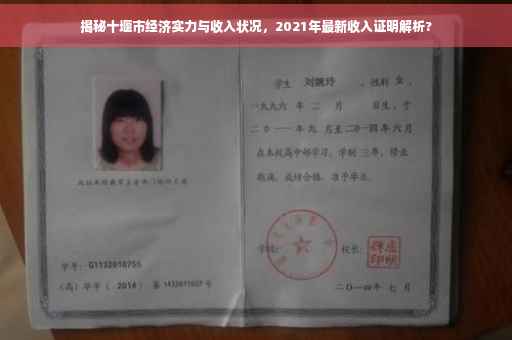 揭秘十堰市经济实力与收入状况，2021年最新收入证明解析?
学生 刘婉玲 ，性别 女 ，
一九九六 年 二 月 日生，于
二〇一一年 九 月至 二〇一四年 六 月
在本校高中部学习，学制 三 年，修业
期满，成绩合格，准予毕业。
学校: 校长:
学号: G1132010755
(高) 毕字 ( 2014 ) 第 1432011027 号
二〇一四年 七 月